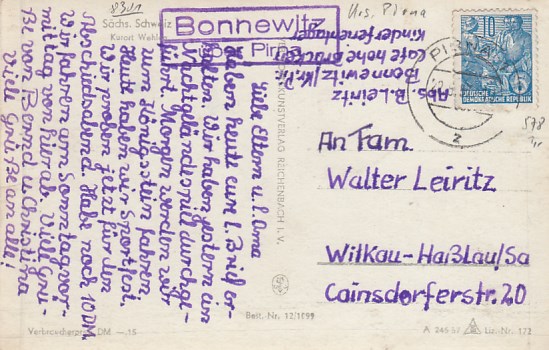 8301
Sächs. Schweiz
Kurort Wehlen
Bonnewitz
über Pirna
Krs. Pirna
Abs. B. Leiritz
Bonnewitz/Kr. Pir.
Cafe hohe Brücken
Kinderferienlager
10
DEUTSCHE
DEMOKRATISCHE REPUBLIK
PIRNA
2
578
Liebe Eltern u. l. Oma
Haben heute eure l. Brief er-
halten. Wir haben gestern ein
Nachtgeländespiel durchge-
führt. Morgen werden wir
zum Königsstein fahren
Heute haben wir Sportfest.
Wir proben jetzt für den
Abschiedsabend. Habe noch 10 DM.
Wir fahren am Sonntagvor-
mittag von hier ab. Viel Grü-
ße von Bernd u. Christina
Viele Grüße an alle!
KUNSTVERLAG REICHENBACH I. V.
An Fam.
Walter Leiritz
Wilkau-Haßlau/Sa
Cainsdorferstr. 20
Best. Nr. 12/1099
Verbraucherpreis DM —.15
A 245 57
Liz.-Nr. 172